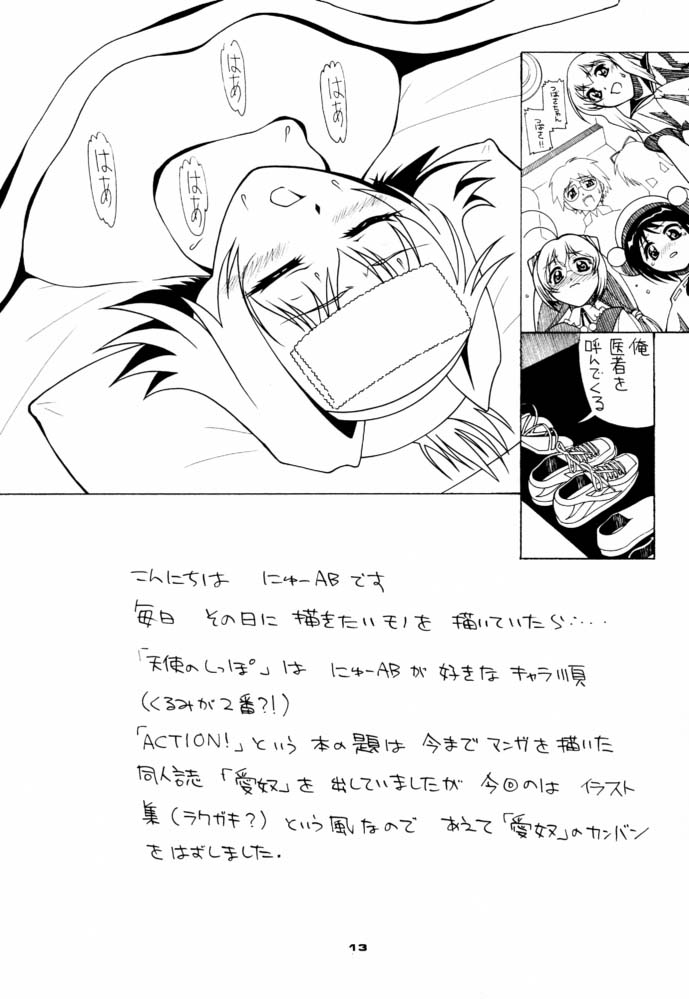 つばさちゃん
つばさ!!
俺
医者を
呼んでくる
はあ
はあ
はあ
はあ
こんにちは にゅーABです
毎日 その日に 描きたいモノを 描いていたら‥‥
「天使のしっぽ」は にゅーABが 好きな キャラ順
(くるみが2番?!)
「ACTION!」という 本の題は 今まで マンガを 描いた
同人誌 「愛奴」を 出していましたが 今回のは イラスト
集(ラクガキ?)という風なので あえて「愛奴」のカンバン
をはずしました.
13